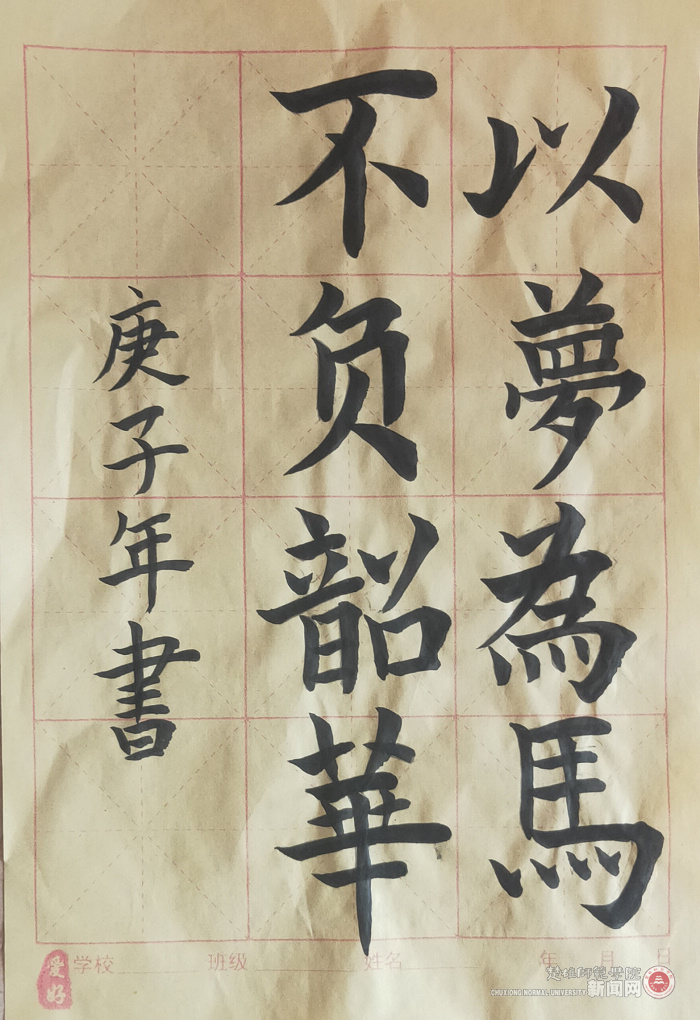 以夢為馬
不负韶華
庚子年書
愛好
学校 班级 姓名 年 月 日
楚雄師範學院
CHUXIONG NORMAL UNIVERSITY
新闻网